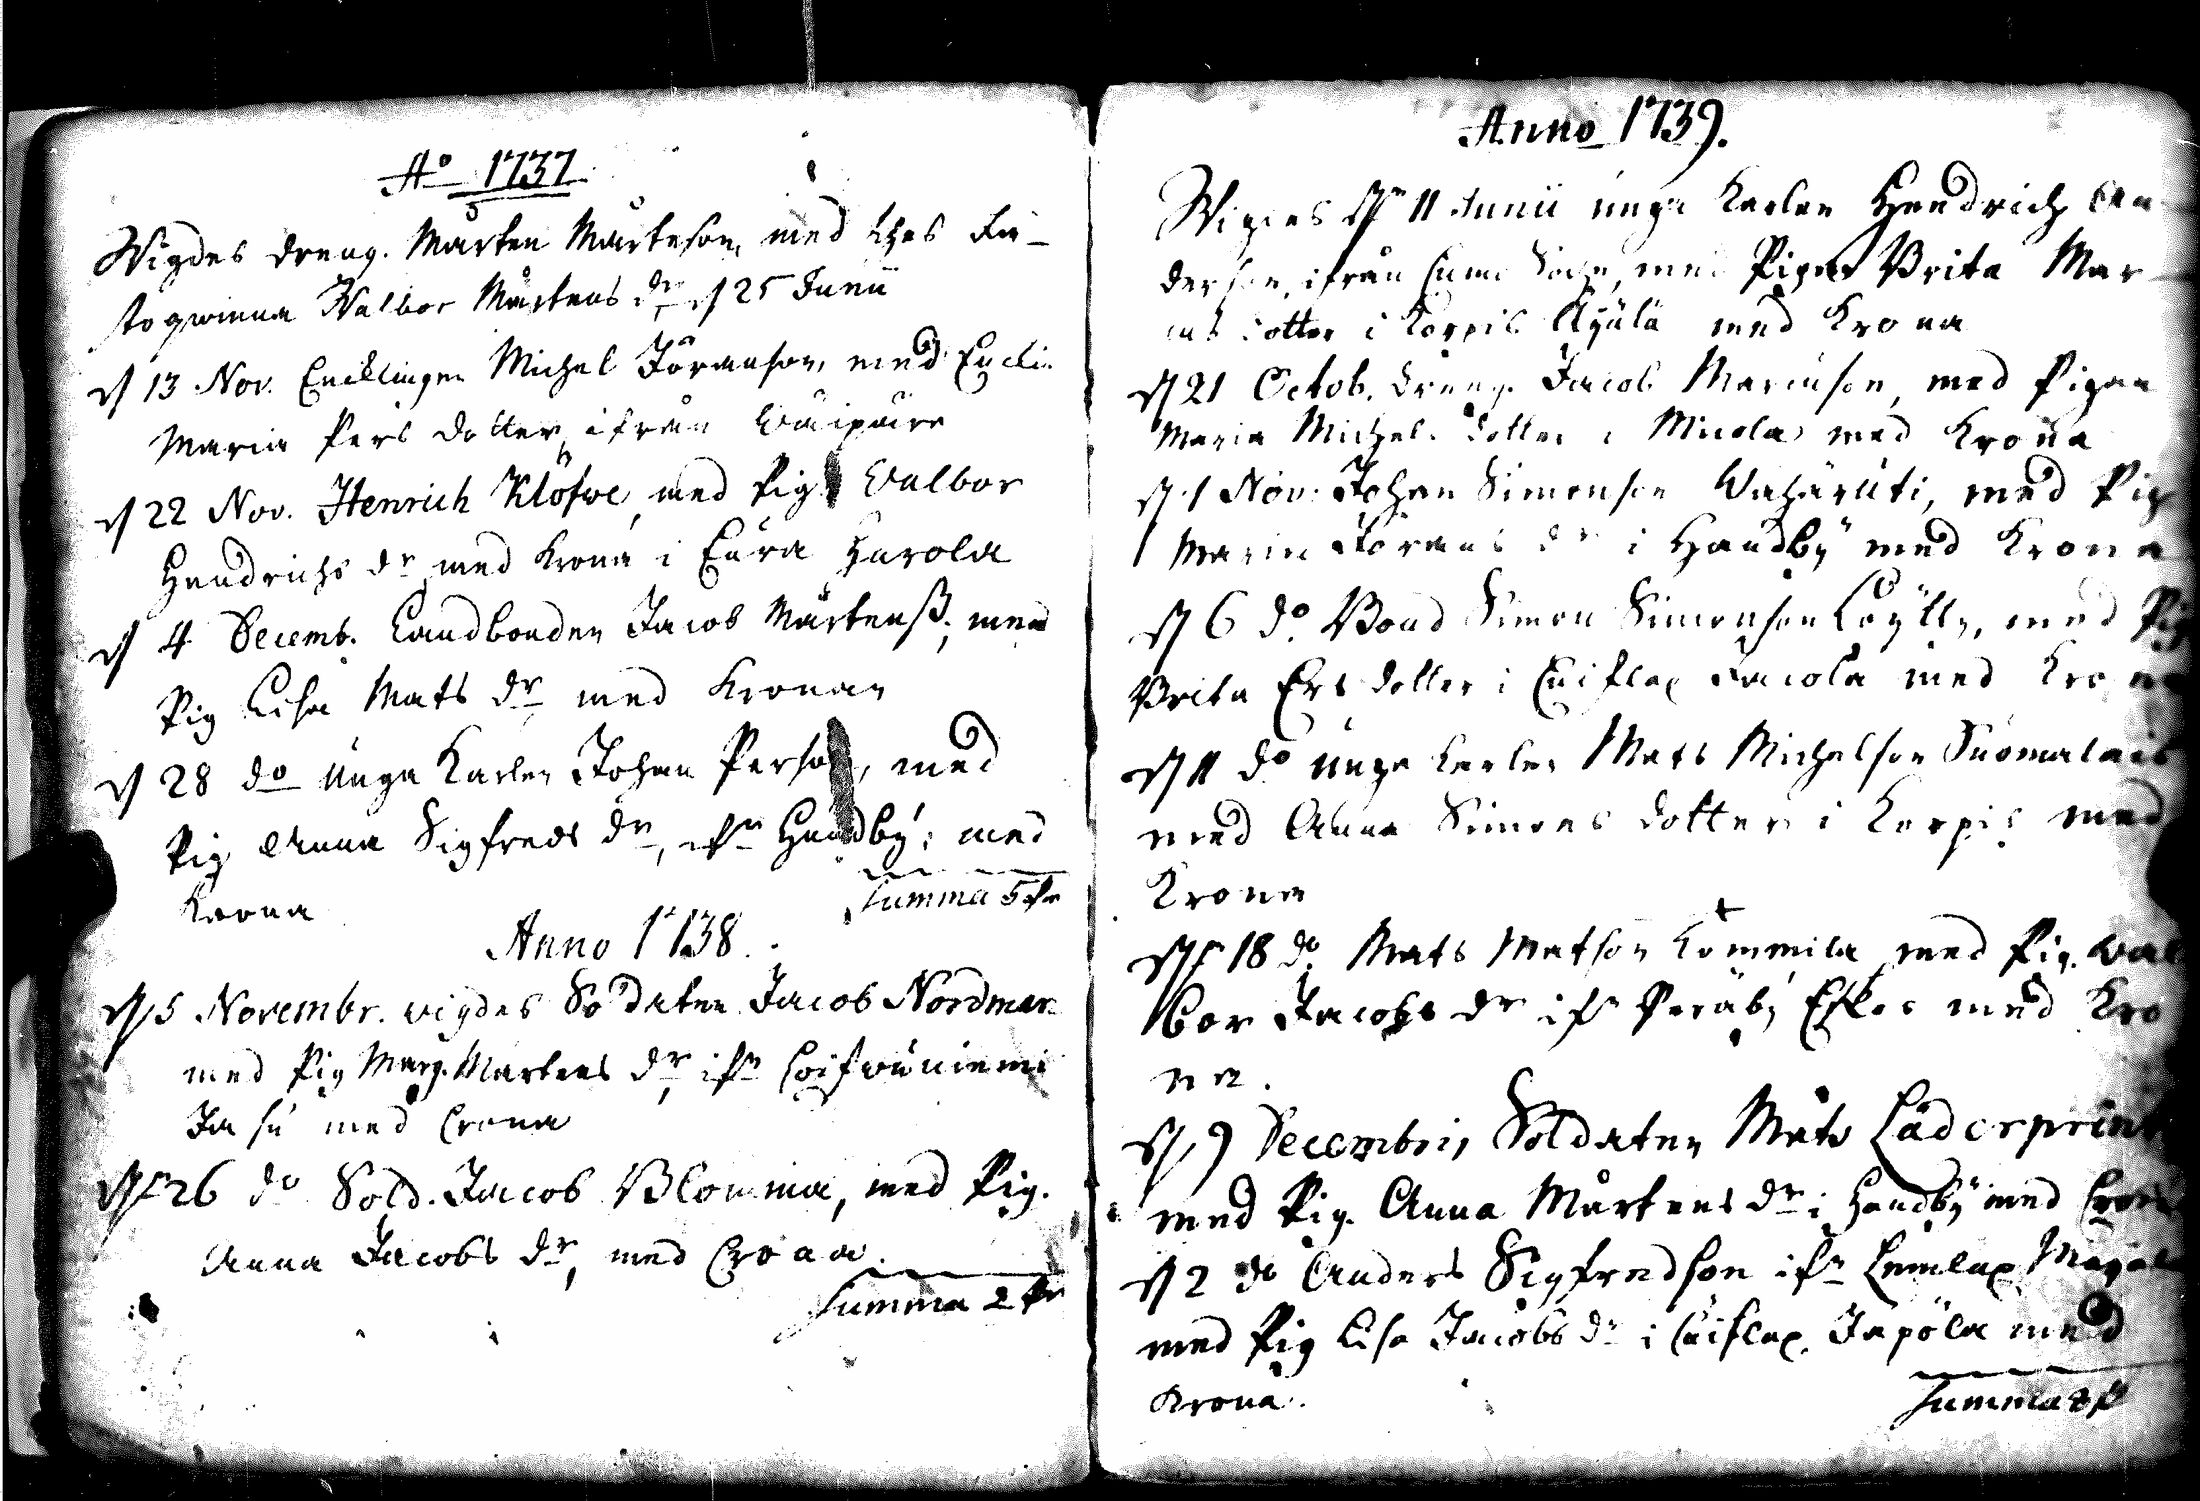 Ao 1737
Wigdes dreng. Mårten Mårteson, med thes fä-
steqwinna Walbor Mårtens dr d 25 Junii
d 13 Nov. Encklingen Michel Jöranson, med Enckia
Maria Pers dotter, ifrån
d 22 Nov. Henrich Klöfwe, med Pig. Valbor
Hendrichs dr med Krona i Eura Harola
d 4 Decemb. Landbonden Jacob Mårtenß. med
Pig Lisa Mats dr med Kronan
d 28 do unga Karlen Johan Person, med
Pig Anna Sigfreds dr, ifn Handby, med
Krona
Summa 5 Pr
Anno 1738.
d 5 Novembr. vigdes Soldaten Jacob Nordman
med Pig Marg. Martens dr ifn
Jasu med Crona
d 26 do Sold. Jacob Blomma, med Pig.
Anna Jacobs dr, med Crona.
Summa 2 Pr
Anno 1739.
Wigdes dn 11 Junii unga Karlen Hendrich An
derson, ifrån Sochn, med Pigan Brita Mar
dotter i Korpis Kylä med Krona
d 21 Octob. dreng. Jacob Marcuson, med Pigan
Maria Michels dotter i Micola med Krona
d 1 Nov. Johan Simonson med Pig
Maria Jörans dr i Handby med Krona
d 6 do Bond Simon Simonson Löytty, med Pig
Brita Ers dotter i Jacola med Krona
d 11 do unga Karlen Mats Michelson Suomalais
med Anna Simons dotter i Korpis med
Krona
d 18 do Mats Matson med Pig. Wal
bor Jacobs dr ifn Peräby Eskos med Kro
na.
d 9 Decembris Soldaten Mats Läderprint
med Pig. Anna Mårtens dr i Handby med Crona
d 2 do Anders Sigfredson ifn Lemlax
med Pig Lisa Jacobs dr i Japola med
Krona.
Summa 8 P